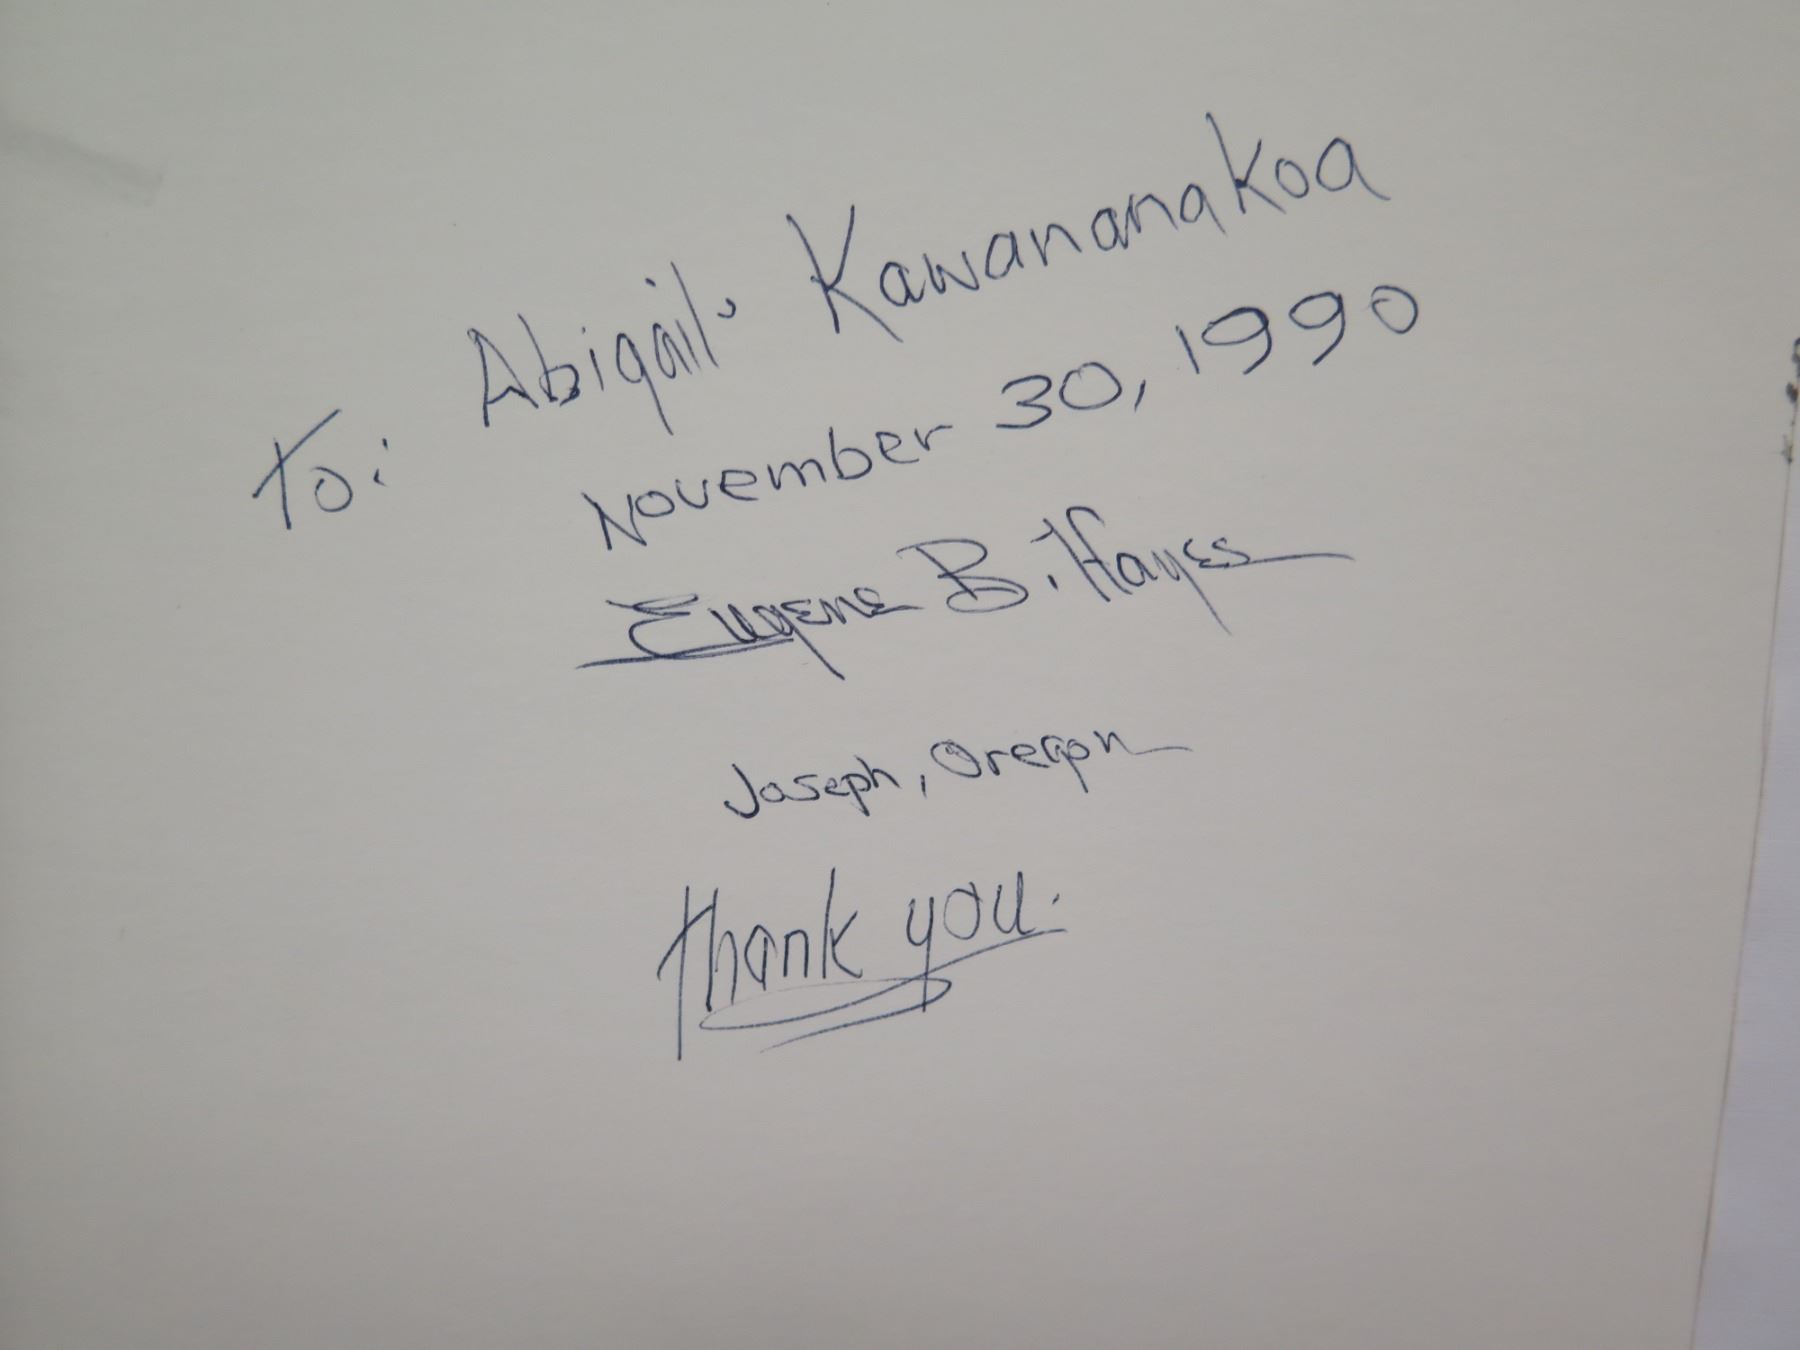 To: Abigail Kawananakoa
November 30, 1990
Eugene B. Hayes
Joseph, Oregon
Thank you.